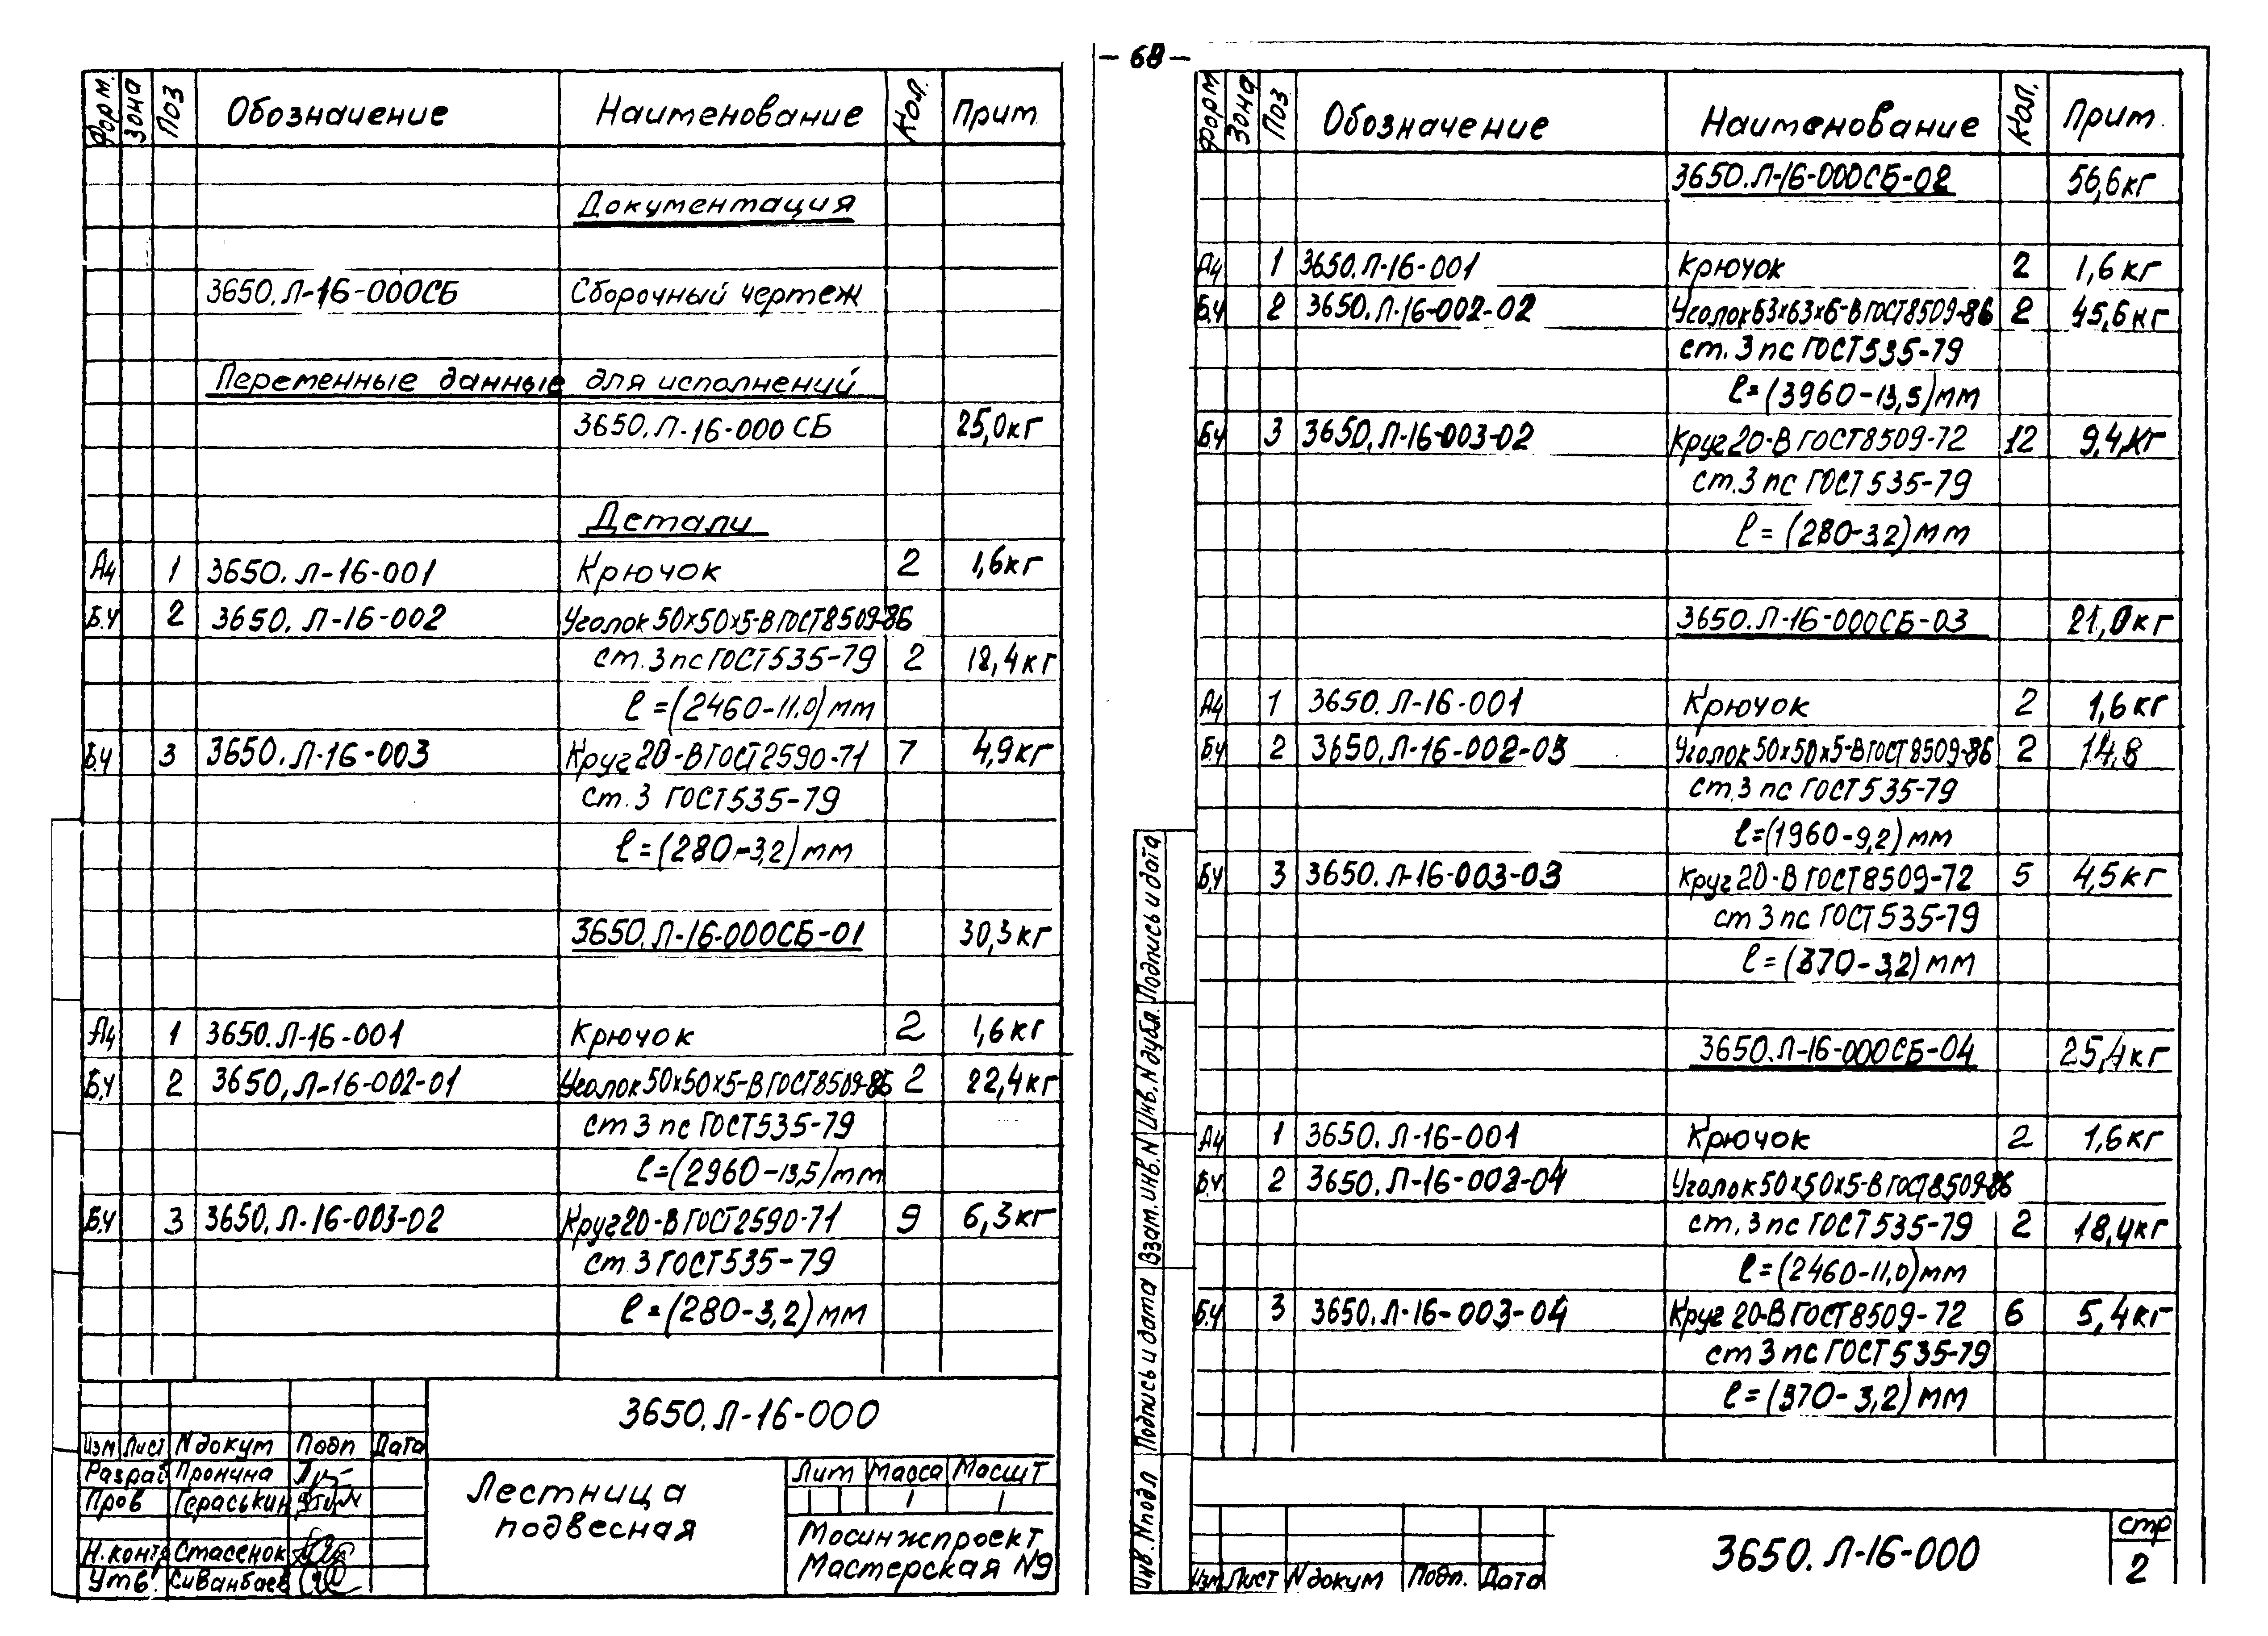 - 68 -
Форм. Зона Поз Обозначение Наименование Кол. Прим.
Документация
3650.Л-16-000СБ Сборочный чертеж
Переменные данные для исполнений
3650.Л-16-000 СБ 25,0кг
Детали
А4 1 3650.Л-16-001 Крючок 2 1,6кг
Б.Ч 2 3650.Л-16-002 Уголок 50х50х5-В ГОСТ 8509-86
ст.3пс ГОСТ 535-79 2 18,4кг
ℓ=(2460-11,0)мм
Б.Ч 3 3650.Л-16-003 Круг 20-В ГОСТ 2590-71 7 4,9кг
ст.3 ГОСТ 535-79
ℓ=(280-3,2)мм
3650.Л-16-000СБ-01 30,3кг
А4 1 3650.Л-16-001 Крючок 2 1,6кг
Б.Ч 2 3650.Л-16-002-01 Уголок 50х50х5-В ГОСТ 8509-86 2 22,4кг
ст 3 пс ГОСТ 535-79
ℓ=(2960-13,5)мм
Б.Ч 3 3650.Л-16-003-02 Круг 20-В ГОСТ 2590-71 9 6,3кг
ст.3 ГОСТ 535-79
ℓ=(280-3,2)мм
3650.Л-16-000
Изм Лист N докум Подп Дата
Разраб Пронина
Пров Гераськин
Н.контр Стасенок
Утв. Сиванбаев
Лестница
подвесная
Лит Масса Масшт
Мосинжпроект
Мастерская N9
Форм Зона Поз Обозначение Наименование Кол. Прим.
3650.Л-16-000СБ-02 56,6кг
А4 1 3650.Л-16-001 Крючок 2 1,6кг
Б.Ч 2 3650.Л-16-002-02 Уголок 63х63х6-В ГОСТ 8509-86 2 45,6кг
ст.3 пс ГОСТ 535-79
ℓ=(3960-13,5)мм
Б.Ч 3 3650.Л-16-003-02 Круг 20-В ГОСТ 8509-72 12 9,4кг
ст.3 пс ГОСТ 535-79
ℓ=(280-3,2)мм
3650.Л-16-000СБ-03 21,0кг
А4 1 3650.Л-16-001 Крючок 2 1,6кг
Б.Ч 2 3650.Л-16-002-03 Уголок 50х50х5-В ГОСТ 8509-86 2 14,8
ст.3 пс ГОСТ 535-79
ℓ=(1960-9,2)мм
Б.Ч 3 3650.Л-16-003-03 Круг 20-В ГОСТ 8509-72 5 4,5кг
ст 3 пс ГОСТ 535-79
ℓ=(370-3,2)мм
3650.Л-16-000СБ-04 25,4кг
А4 1 3650.Л-16-001 Крючок 2 1,6кг
Б.Ч 2 3650.Л-16-002-04 Уголок 50х50х5-В ГОСТ 8509-86
ст.3 пс ГОСТ 535-79 2 18,4кг
ℓ=(2460-11,0)мм
Б.Ч 3 3650.Л-16-003-04 Круг 20-В ГОСТ 8509-72 6 5,4кг
ст 3 пс ГОСТ 535-79
ℓ=(370-3,2)мм
Инв.N подл Подпись и дата Взам.инв.N Инв.N дубл. Подпись и дата
Изм Лист N докум Подп. Дата
3650.Л-16-000
стр
2